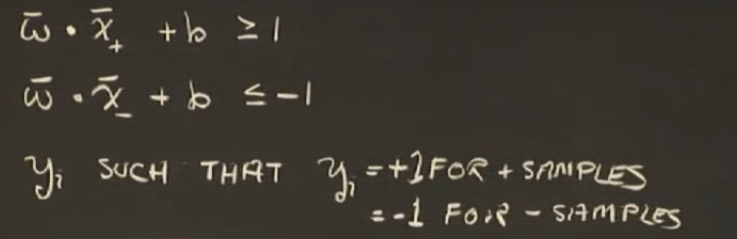 w̄ · x̄₊ + b ≥ 1
w̄ · x̄₋ + b ≤ -1
yᵢ SUCH THAT yᵢ = +1 FOR + SAMPLES
= -1 FOR - SAMPLES